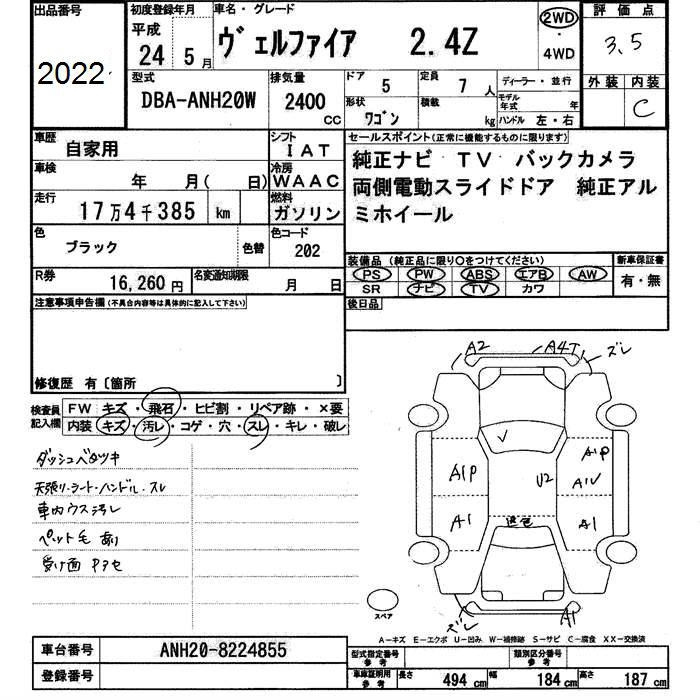 出品番号
2022
初度登録年月
平成
24 5月
車名・グレード
ヴェルファイア 2.4Z
2WD
・
4WD
評価点
3.5
外装 内装
C
型式
DBA-ANH20W
排気量
2400
CC
ドア 5
形状 ワゴン
定員 7人
積載 kg
ディーラー・並行
モデル年式 年
ハンドル 左・右
車歴 自家用
シフト IAT
車検 年 月( 日)
冷房 WAAC
走行 17万4千385 km
燃料 ガソリン
色 ブラック 色替
色コード 202
R券 16,260円
名変通知期限 月 日
セールスポイント(正常に機能するものに限ります)
純正ナビ TV バックカメラ
両側電動スライドドア 純正アル
ミホイール
装備品(純正品に限り○をつけてください)
PS PW ABS エアB AW
SR ナビ TV カワ
新車保証書
有・無
後日品
注意事項申告欄(不具合内容等は具体的に記入して下さい)
修復歴 有〔箇所 〕
検査員記入欄
FW キズ・飛石・ヒビ割・リペア跡・×要
内装 キズ・汚レ・コゲ・穴・スレ・キレ・破レ
ダッシュベタツキ
天張り・シート・ハンドル・スレ
車内ウス汚レ
ペット毛 あり
受け面 Pアセ
A2 A4T ズレ
V
A1P U2 A1P
A1V
A1 退色 A1
ズレ A1
スペア
A-キズ E-エクボ U-凹み W-補修跡 S-サビ C-腐食 XX-交換済
車台番号 ANH20-8224855
登録番号
型式指定番号 参考
類別区分番号 参考
車庫証明用 参考
長さ 494 cm 幅 184 cm 高さ 187 cm